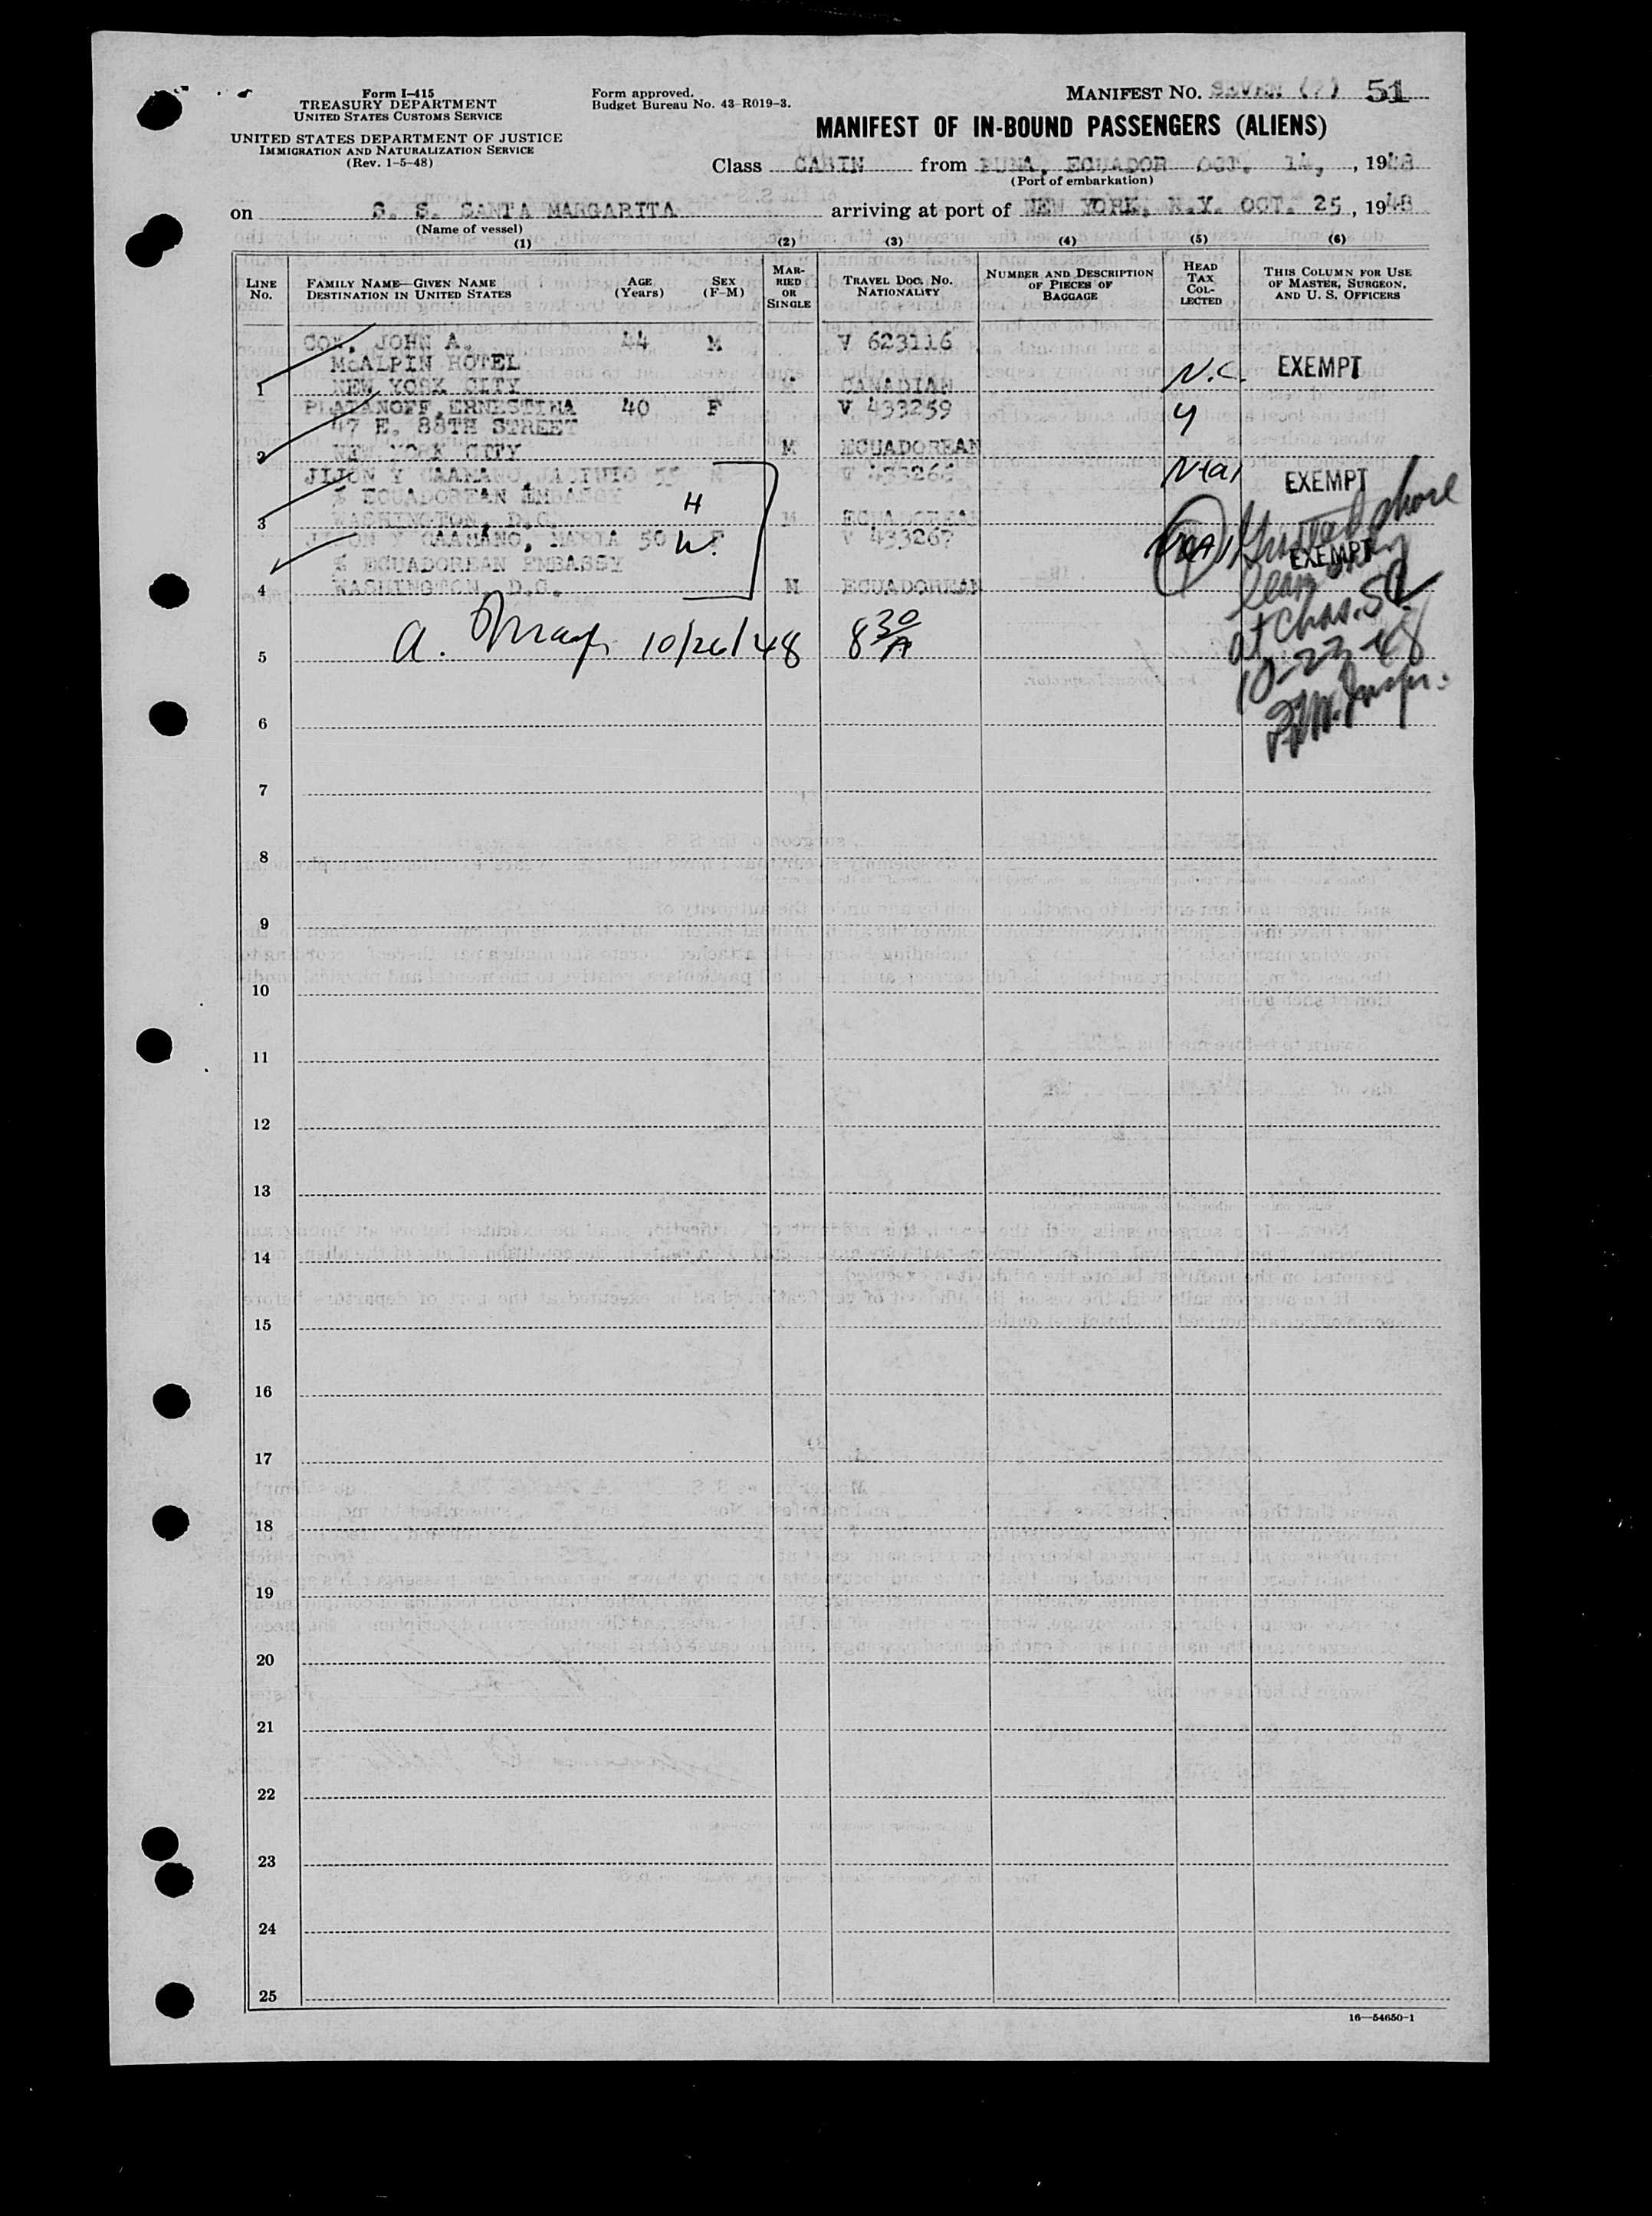 Form I-415
TREASURY DEPARTMENT
UNITED STATES CUSTOMS SERVICE
UNITED STATES DEPARTMENT OF JUSTICE
IMMIGRATION AND NATURALIZATION SERVICE
(Rev. 1-5-48)
Form approved.
Budget Bureau No. 43-R019-3.
MANIFEST NO. SEVEN (7) 51
MANIFEST OF IN-BOUND PASSENGERS (ALIENS)
Class CABIN from PUNA, ECUADOR OCT. 14, , 1948
(Port of embarkation)
on S. S. SANTA MARGARITA arriving at port of NEW YORK, N.Y. OCT. 25 , 1948
(Name of vessel)
(1) (2) (3) (4) (5) (6)
LINE No.
FAMILY NAME—GIVEN NAME
DESTINATION IN UNITED STATES
AGE (Years)
SEX (F-M)
MARRIED OR SINGLE
TRAVEL DOC. NO.
NATIONALITY
NUMBER AND DESCRIPTION OF PIECES OF BAGGAGE
HEAD TAX COLLECTED
THIS COLUMN FOR USE OF MASTER, SURGEON, AND U. S. OFFICERS
JOHN A. 44 M V 623116
McALPIN HOTEL N.C. EXEMPT
1 NEW YORK CITY M CANADIAN
PLATANOFF, ERNESTINA 40 F V 433259
47 E. 88TH STREET
2 NEW YORK CITY M ECUADOREAN
JIJON Y CAAMANO, JACINTO 55 M V 433266
% ECUADOREAN EMBASSY H EXEMPT
3 WASHINGTON, D.C. M ECUADOREAN
JIJON Y CAAMANO, MARIA 50 W. F V 433267 EXEMPT
% ECUADOREAN EMBASSY
4 WASHINGTON, D.C. M ECUADOREAN
Granted shore
leave only
at Chas. SC
10-23-48
5 10/26/48 8 30 A
6
7
8
9
10
11
12
13
14
15
16
17
18
19
20
21
22
23
24
25
16—54650-1